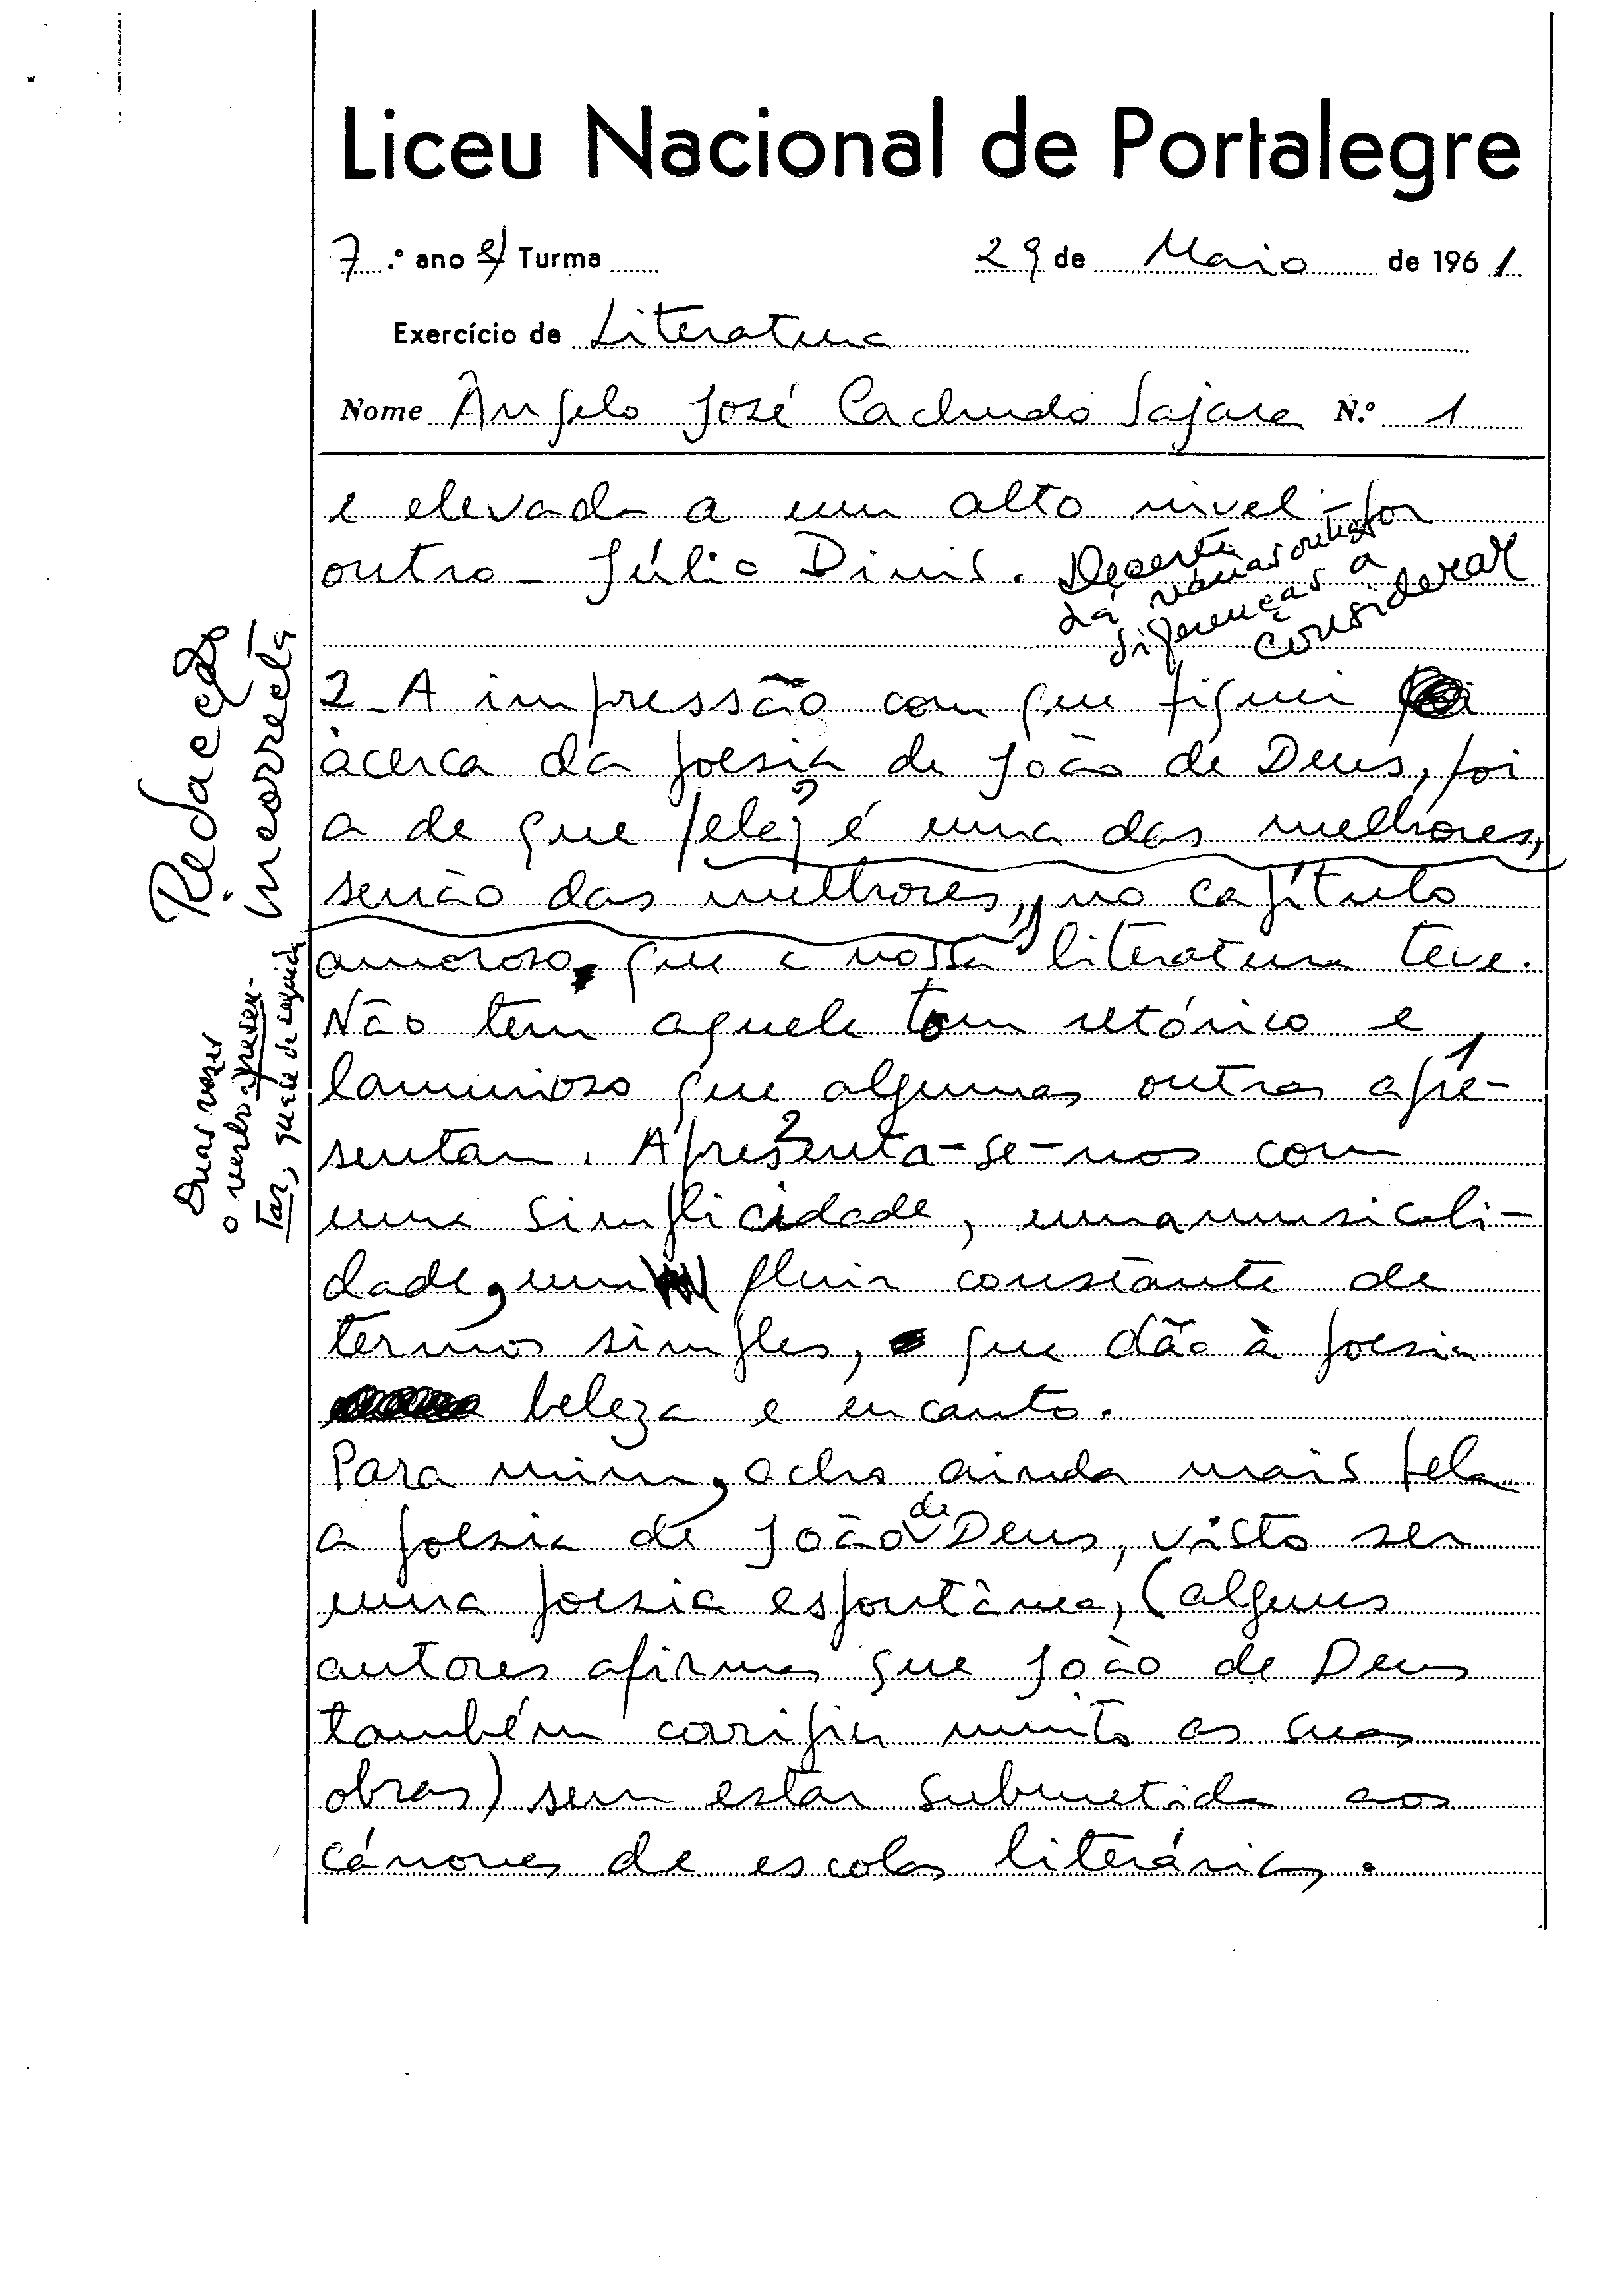 Liceu Nacional de Portalegre
7.º ano Turma
29 de Maio de 1961
Exercício de Literatura
Nome Ângelo José Cachudo Sajara N.º 1
e elevada a um alto nivel - por
outro - Júlio Dinis. Decerto
há várias outras
diferenças a
considerar
2 - A impressão com que fiquei
àcerca da poesia de João de Deus, foi
a de que (ela) é uma das melhores,
senão das melhores, no capítulo
amoroso, que a nossa literatura teve.
Não tem aquele tom retórico e
laminoso que algumas outras apre- 1
sentam. Apresenta-se-nos com 2
uma simplicidade, uma musicali-
dade, um fluir constante de
termos simples, que dão à poesia
beleza e encanto.
Para mim, acho ainda mais bela
a poesia de João de Deus, visto ser
uma poesia espontânea, (alguns
autores afirmam que João de Deus
também corrigiu muito as suas
obras) sem estar submetida aos
cânones de escolas literárias.
Redacção
incorrecta
Duas vezes
o verbo apresen-
tar, quase de seguida